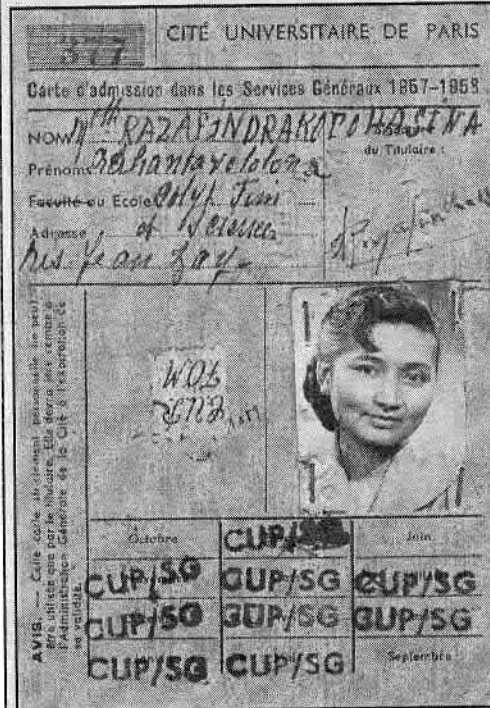 377
CITÉ UNIVERSITAIRE DE PARIS
Carte d'admission dans les Services Généraux 1957-1958
NOM Mlle RAZAFINDRAKOTOHASINA
Prénoms Rahantavololona
Signature
du Titulaire :
Faculté ou Ecole
Adresse
Jean Zay
AVIS. — Cette carte strictement personnelle ne peut
être utilisée que par le titulaire. Elle devra être remise à
l'Administration Générale de la Cité à l'expiration de
sa validité.
Octobre
CUP/SG
Juin
CUP/SG
CUP/SG
CUP/SG
CUP/SG
CUP/SG
CUP/SG
CUP/SG
CUP/SG
Septembre